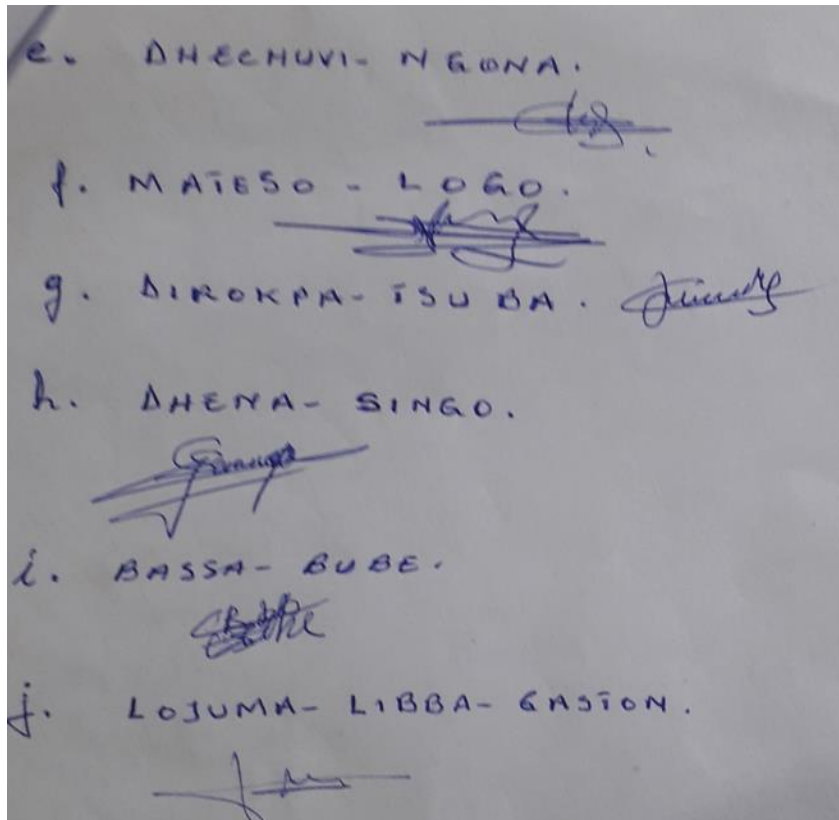 e. DHECHUVI- NGONA.
f. MATESO - LOGO.
g. DIROKPA- TSUBA.
h. DHENA- SINGO.
i. BASSA- BUBE.
j. LOJUMA- LIBBA- GASTON.